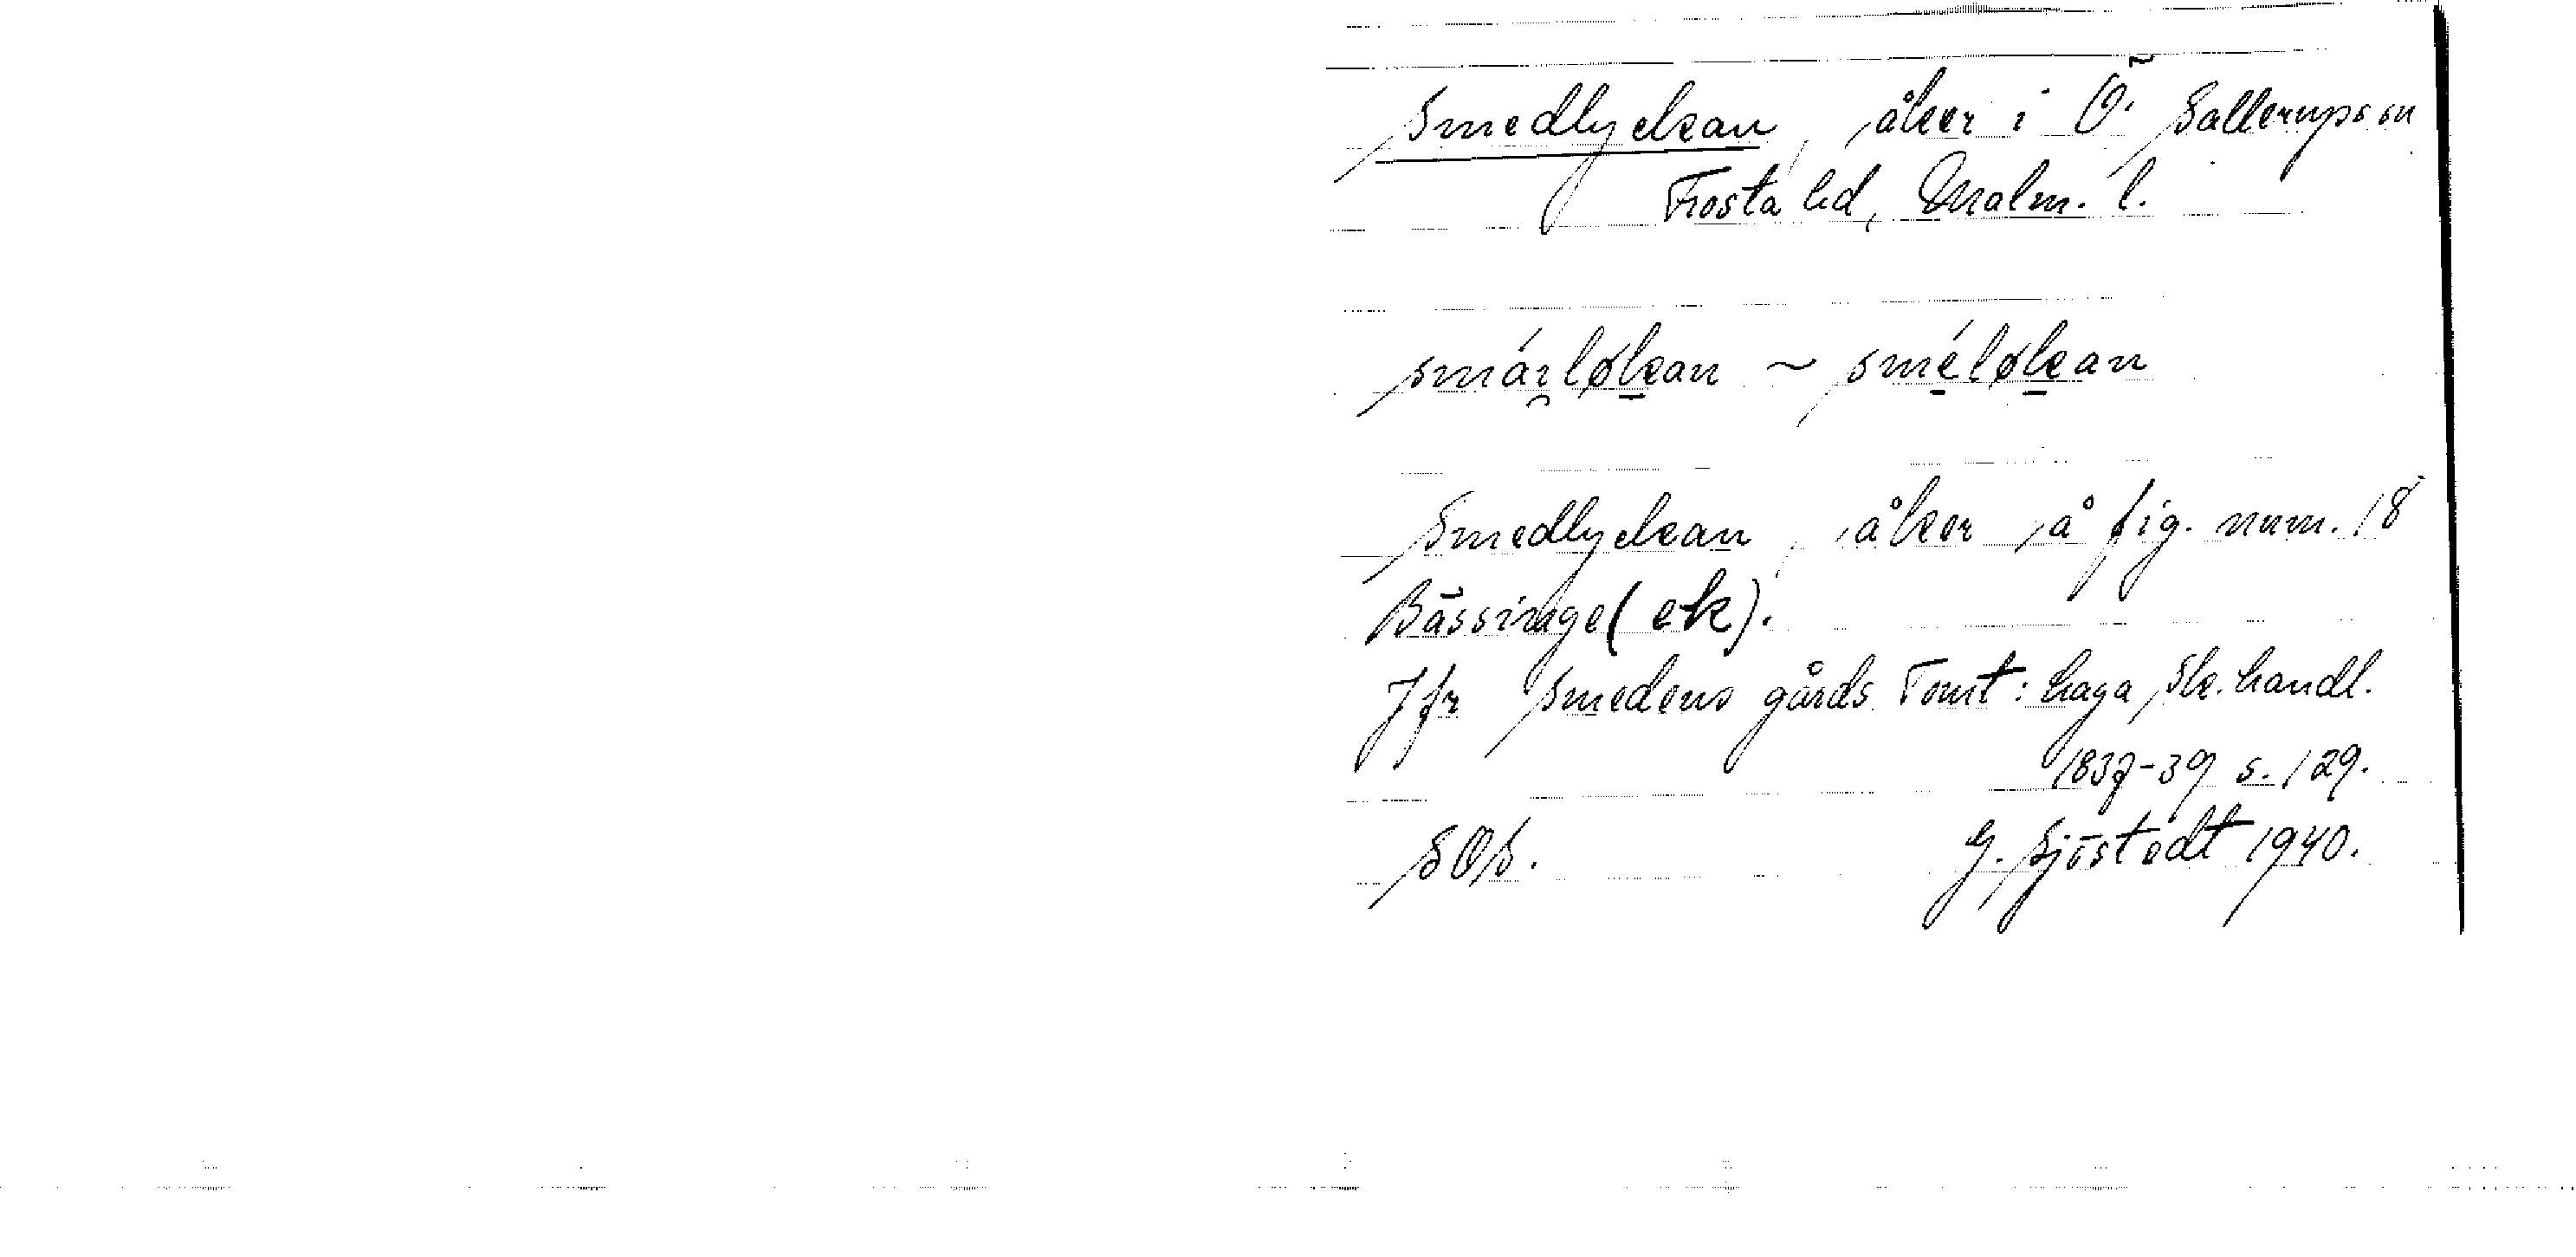 Smedlyckan, åker i Ö. Sallerups sn
Frosta hd, Malm. l.
smárløkan ~ sméløkan
Smedlyckan, åker å fig. num. 18
Bässinge (ek).
Jfr Smedens gårds Tomt: Laga sk. handl.
1837-39 s. 129.
SOS. G. Sjöstedt 1940.